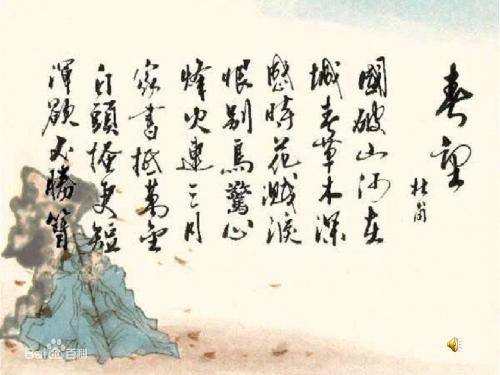 春望
杜甫
國破山河在
城春草木深
感時花濺淚
恨别鳥驚心
烽火連三月
家書抵萬金
白頭搔更短
渾欲不勝簪
Bai百科